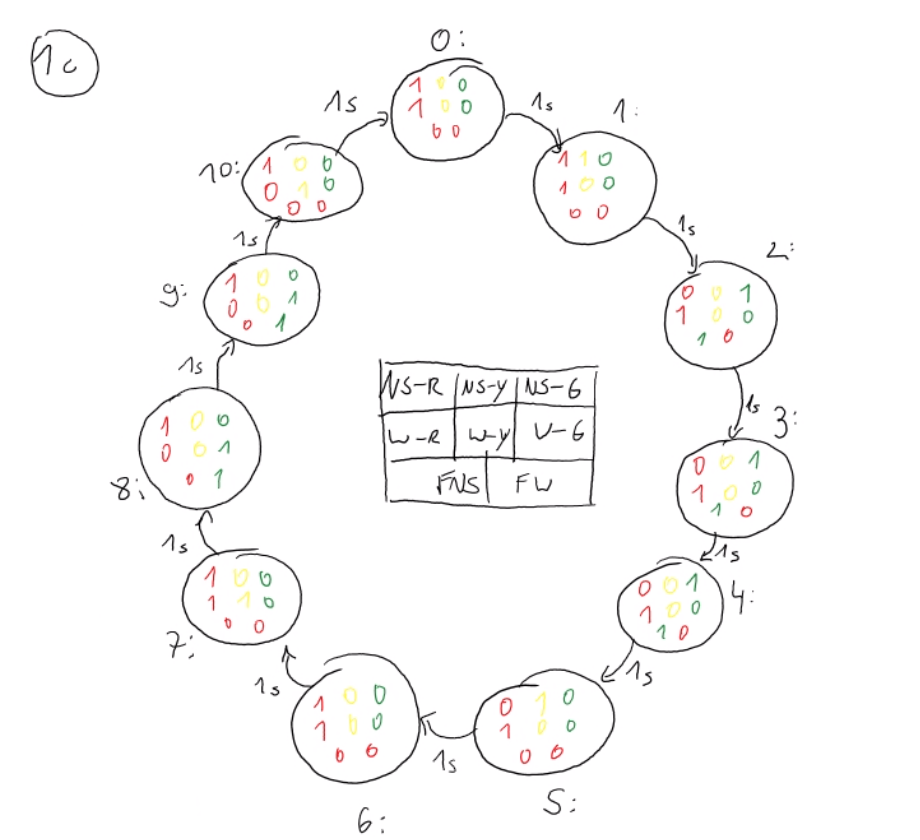 1c
0:
1 0 0
1 0 0
0 0
1s
1:
1 1 0
1 0 0
0 0
1s
2:
0 0 1
1 0 0
1 0
1s
3:
0 0 1
1 0 0
1 0
1s
4:
0 0 1
1 0 0
1 0
1s
5:
0 1 0
1 0 0
0 0
1s
6:
1 0 0
1 0 0
0 0
1s
7:
1 0 0
1 1 0
0 0
1s
8:
1 0 0
0 0 1
0 1
1s
9:
1 0 0
0 0 1
0 1
1s
10:
1 0 0
0 1 0
0 0
1s
NS-R NS-Y NS-G
W-R W-Y W-G
FNS FW